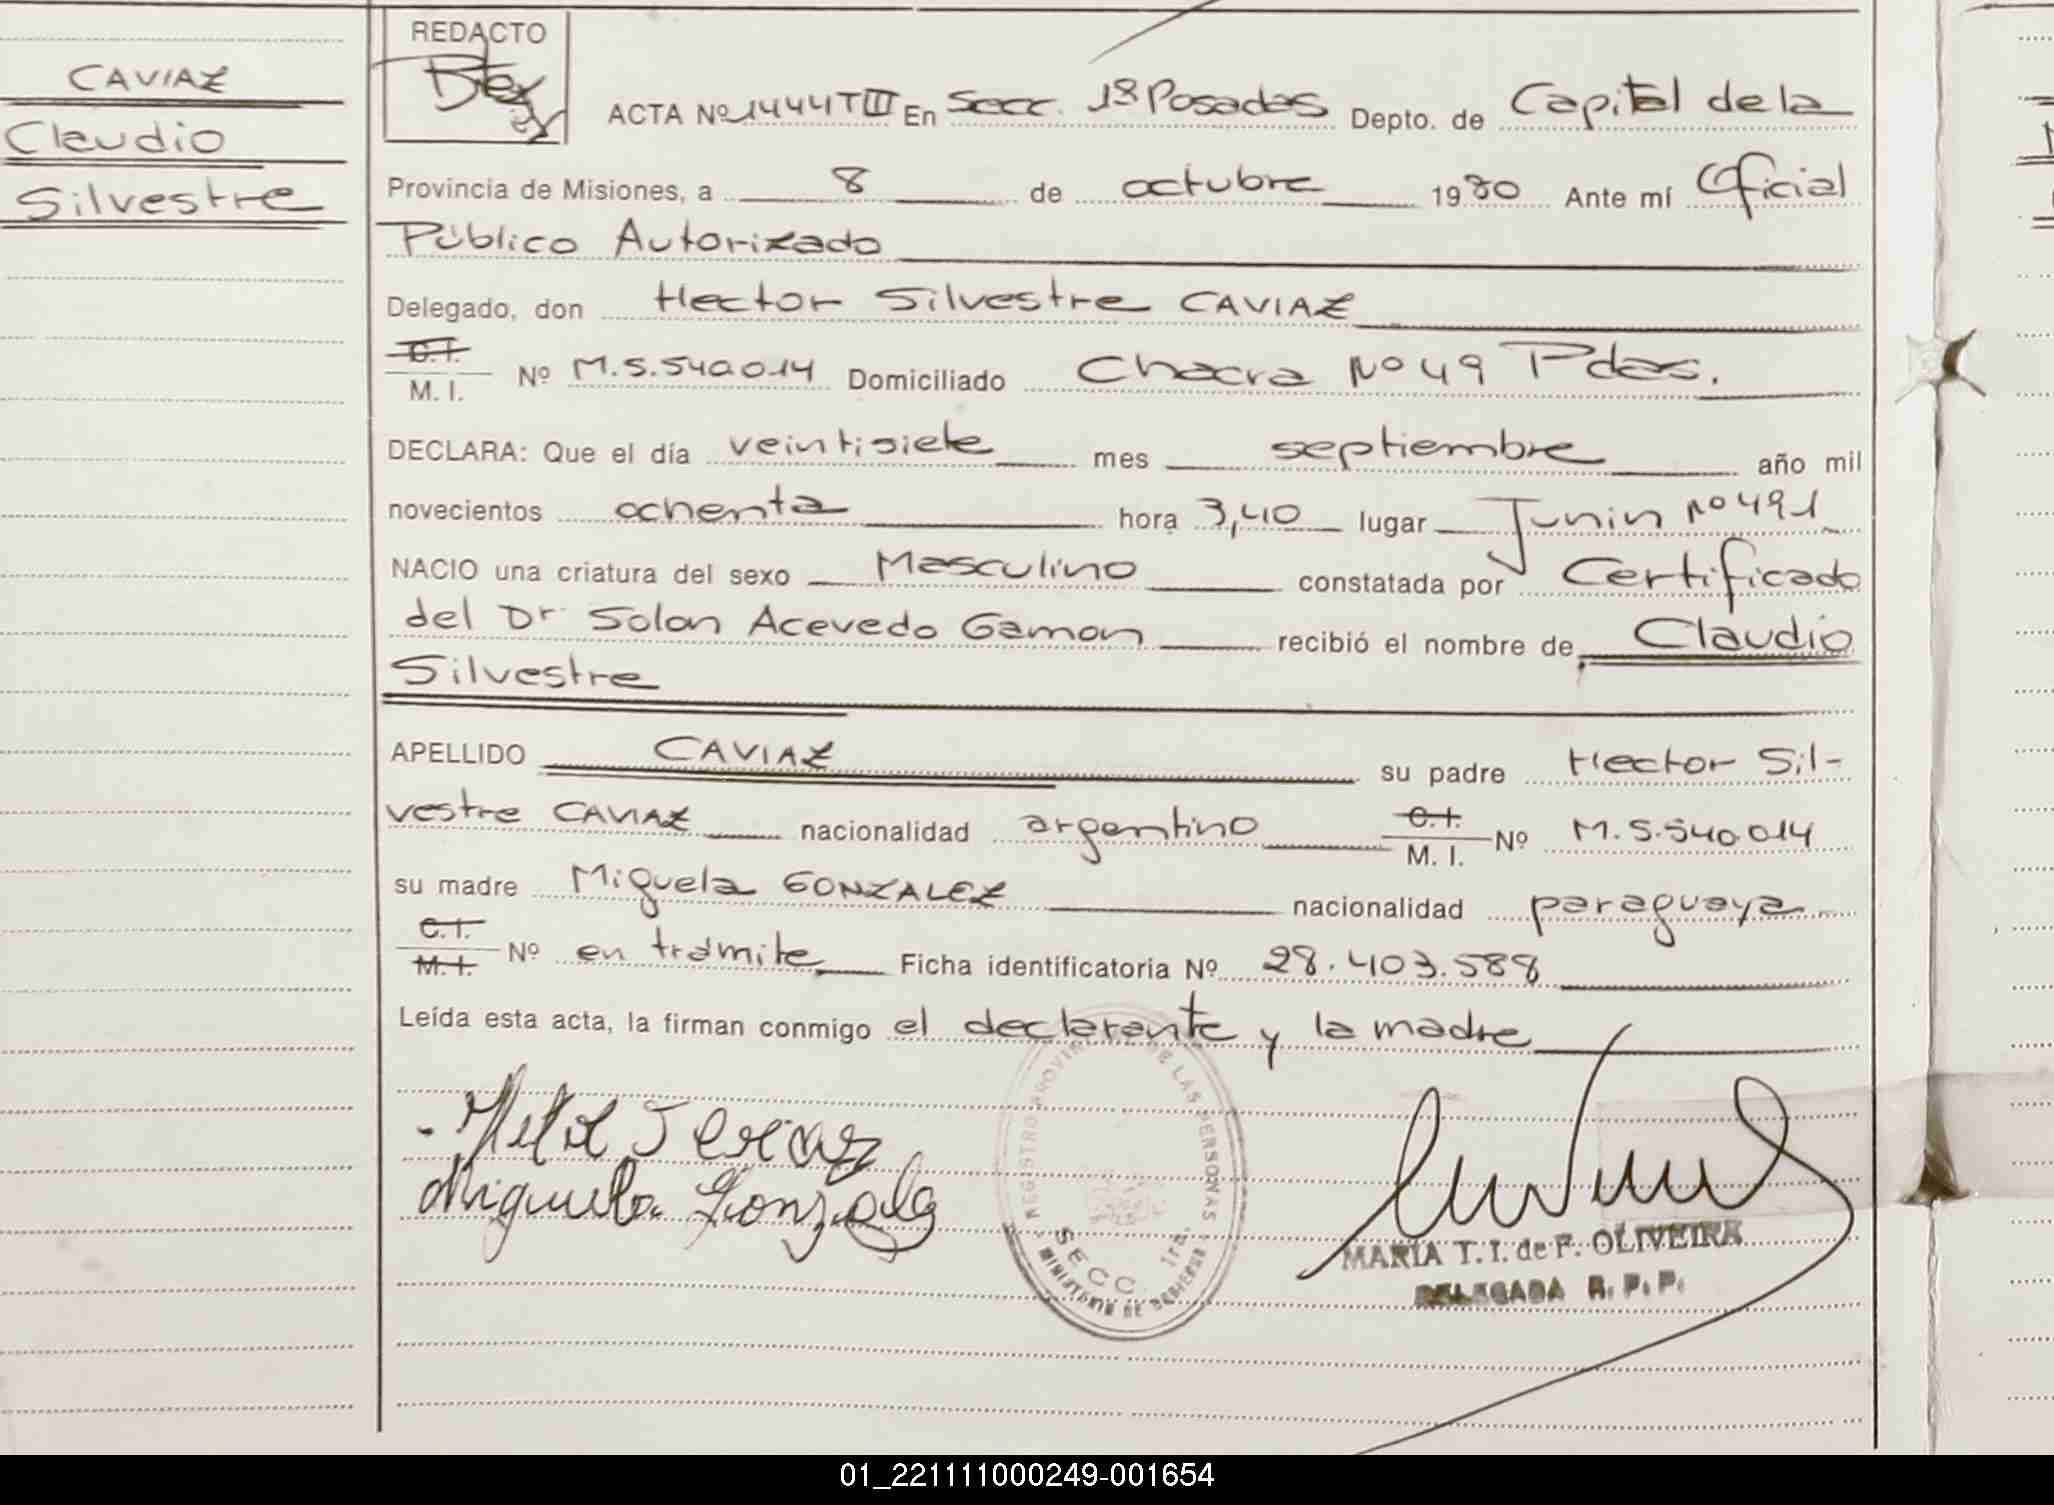 CAVIAZ
Claudio
Silvestre
REDACTO
ACTA Nº 1444 T III En Secc. 1ª Posadas Depto. de Capital de la
Provincia de Misiones, a 8 de octubre 1980 Ante mí Oficial
Público Autorizado
Delegado, don Hector Silvestre CAVIAZ
C.I.
M. I. Nº M.5.540.014 Domiciliado Chacra Nº 49 Pdas.
DECLARA: Que el día veintisiete mes septiembre año mil
novecientos ochenta hora 3,40 lugar Junin Nº 491
NACIO una criatura del sexo Masculino constatada por Certificado
del Dr Solan Acevedo Gamon recibió el nombre de Claudio
Silvestre
APELLIDO CAVIAZ su padre Hector Sil-
vestre CAVIAZ nacionalidad argentino C.I. M. I. Nº M.5.540.014
su madre Miguela GONZALEZ nacionalidad paraguaya
C.I. M.I. Nº en trámite Ficha identificatoria Nº 28.403.588
Leída esta acta, la firman conmigo el declarante y la madre
Miguela Gonzalez
REGISTRO PROVINCIAL DE LAS PERSONAS
SECC. 1ra.
MINISTERIO DE GOBIERNO
MARIA T. I. de F. OLIVEIRA
DELEGADA R. P. P.
01_221111000249-001654